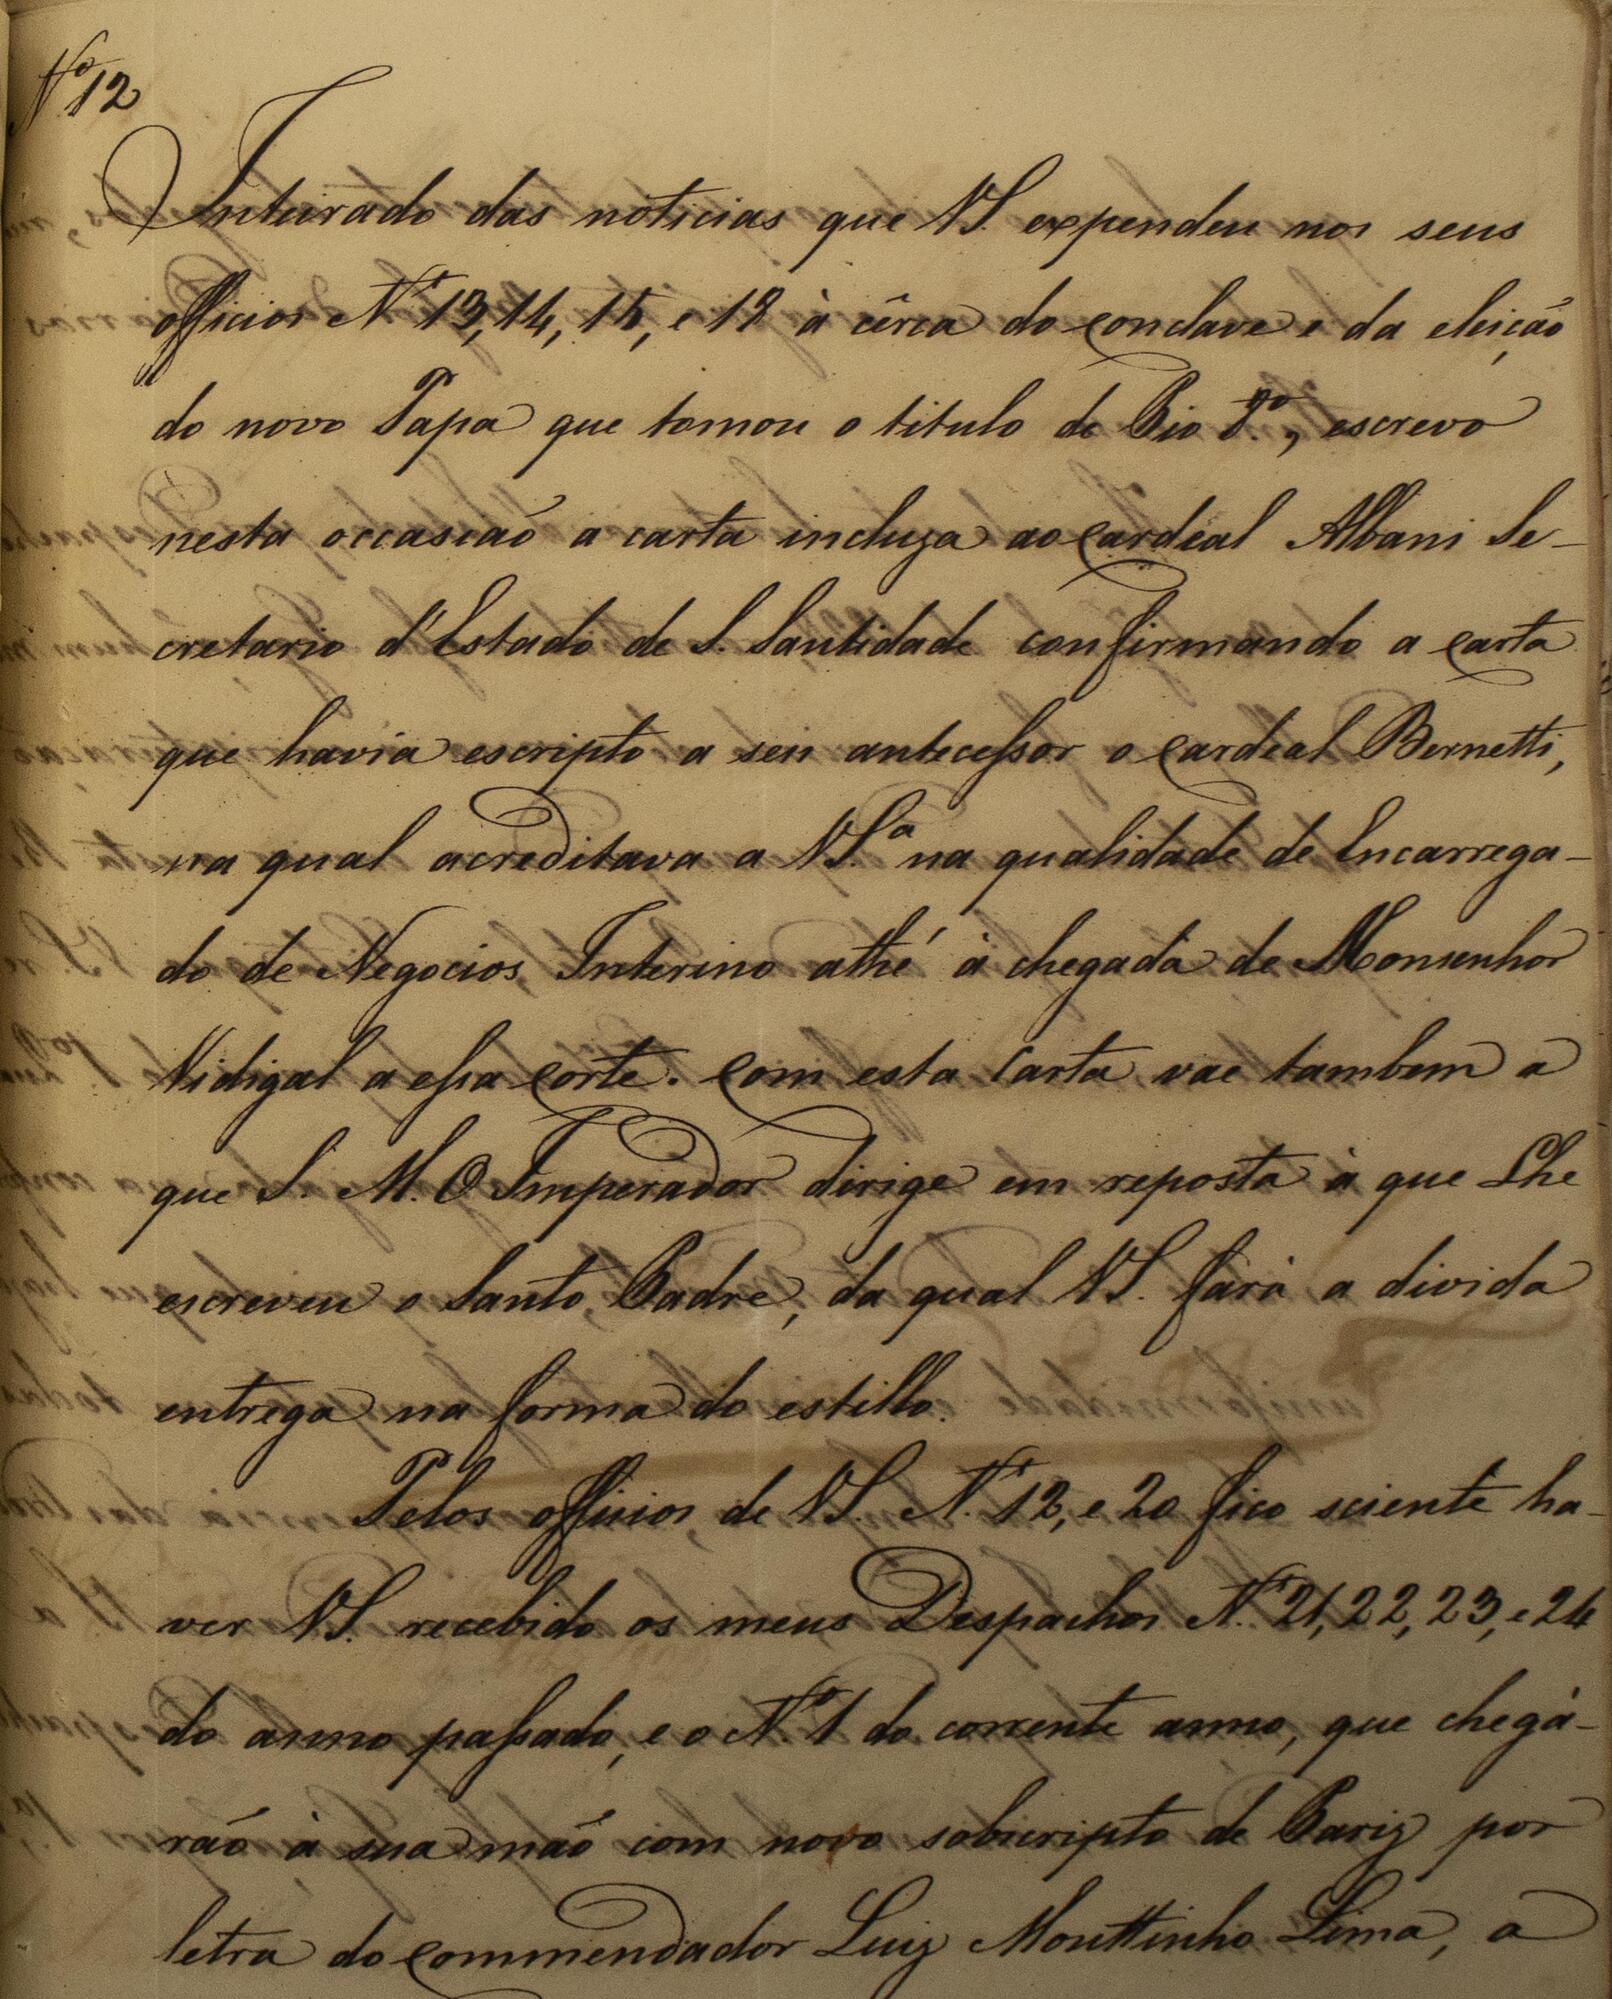 Nº 12
Inteirado das noticias que VS. expendeu nos seus
officios Nº 13, 14, 15, e 18 à cêrca do conclave e da eleição
do novo Papa que tomou o titulo de Pio 8º, escrevo
nesta occasião a carta incluza ao Cardeal Albani Se-
cretario d'Estado de S. Santidade confirmando a carta
que havia escripto a seu antecessor o Cardeal Bernetti,
na qual acreditava a VSª na qualidade de Encarrega-
do de Negocios Interino athé à chegada de Monsenhor
Vidigal a essa Corte. Com esta Carta vae tambem a
que S. M. O Imperador dirige em reposta à que Lhe
escreveu o Santo Padre, da qual VS. fará a divida
entrega na forma do estillo.
Pelos officios de VS. Nº 12, e 20 fico sciente ha-
ver VS. recebido os meus Despachos Nº 21, 22, 23, e 24
do anno passado, e o Nº 1 do corrente anno, que chegá-
rão à sua mão com novo sobscripto de Pariz por
letra do Commendador Luiz Mouttinho Lima, a